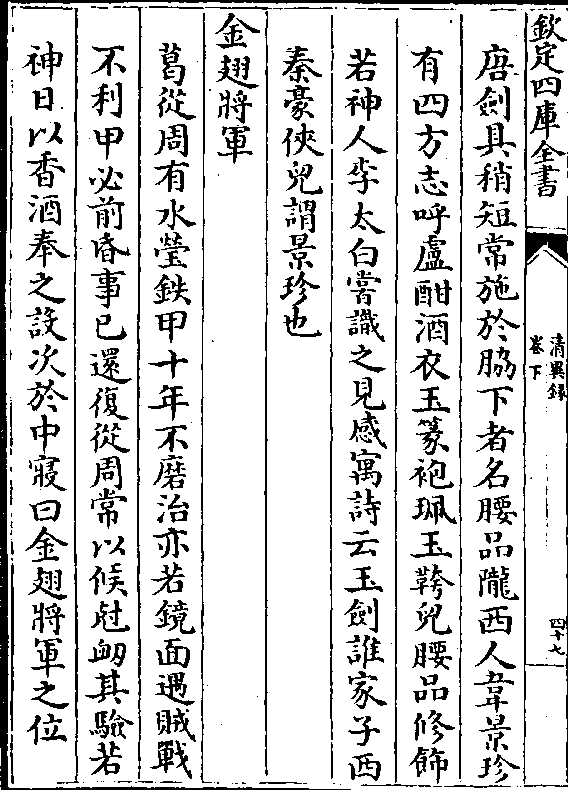 欽定四庫全書
清異録
卷下
四十七
唐劍具稍短常施於脇下者名腰品隴西人韋景珍
有四方志呼盧酣酒衣玉篆袍珮玉鞶兒腰品修飾
若神人李太白嘗識之見感寓詩云玉劍誰家子西
秦豪俠兒謂景珍也
金翅將軍
葛從周有水瑩鉄甲十年不磨治亦若鏡面遇賊戰
不利甲必前昏事已還復從周常以候尅衂其驗若
神日以香酒奉之設次於中寢曰金翅將軍之位